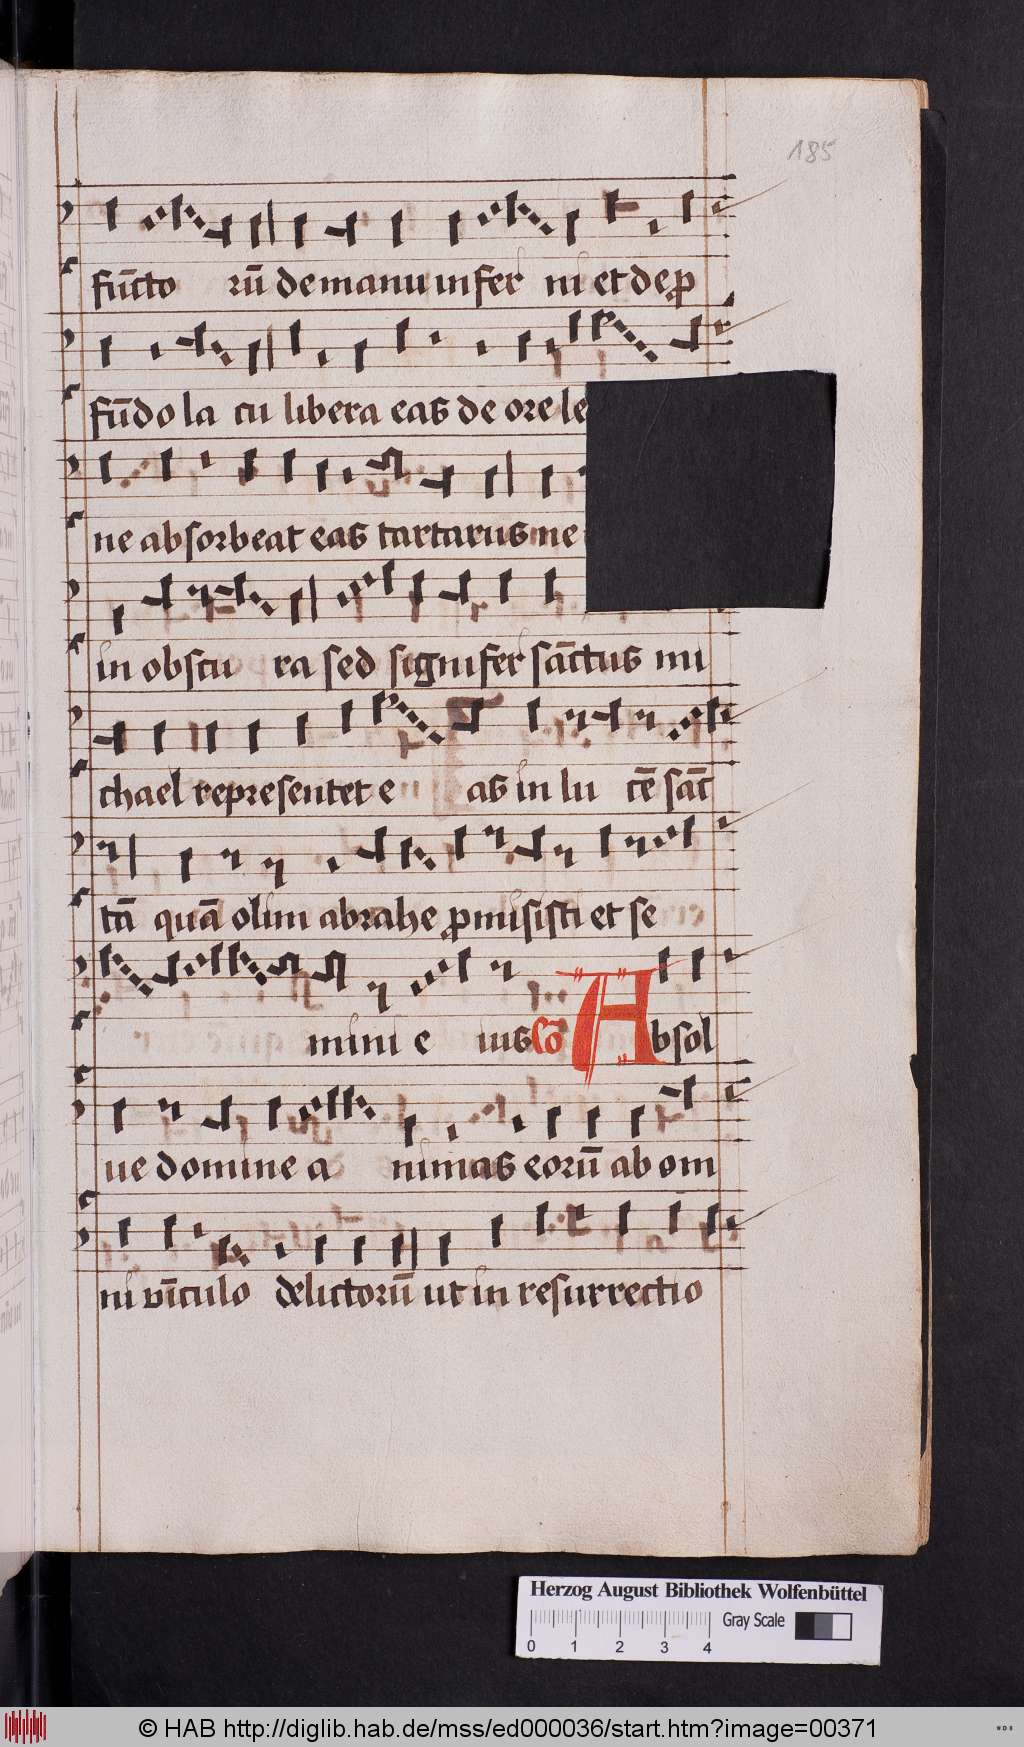 185
fūcto rū de manu infer ni et de ꝓ
fūdo la cu libera eas de ore le
ne absorbeat eas tartarus ne
in obscu ra sed signifer sāctus mi
chael representet e as in lu cē sāc
tā quā olim abrahe ꝓmisisti et se
mini e ius Cō Absol
ue domine a nimas eorū ab om
ni vīculo delictorū ut in resurrectio
Herzog August Bibliothek Wolfenbüttel
0 1 2 3 4 Gray Scale
© HAB http://diglib.hab.de/mss/ed000036/start.htm?image=00371